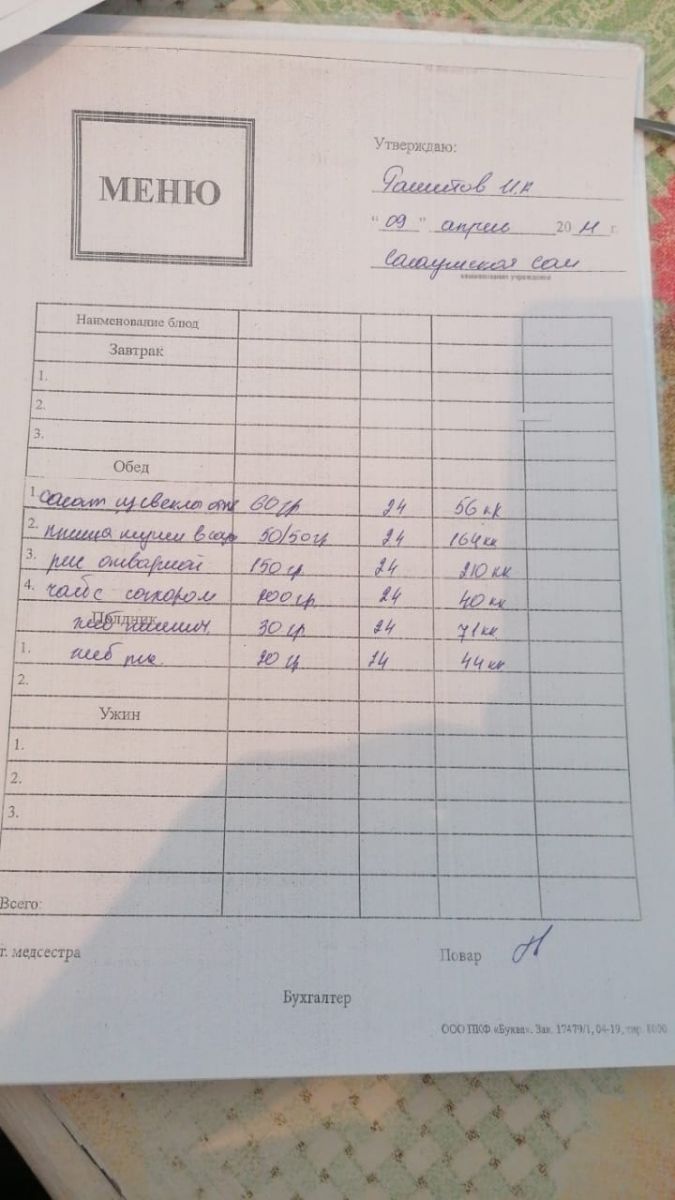 МЕНЮ
Утверждаю:
И.К
"09" апрель 20 г.
сош
наименование учреждения
Наименование блюд
Завтрак
1.
2.
3.
Обед
1. салат из свеклы 60 гр 24 56 кк
2. птица 50/50 гр 24 164 кк
3. рис отварной 150 гр 24 210 кк
4. чай с сахаром 200 гр. 24 40 кк
Полдник
хлеб пшенич. 30 гр 24 71 кк
1. хлеб рж. 20 гр 24 44 кк
2.
Ужин
1.
2.
3.
Всего:
т. медсестра Повар
Бухгалтер
ООО ПКФ «Буква». Зак. 17479/1, 04-19, тир. 8000